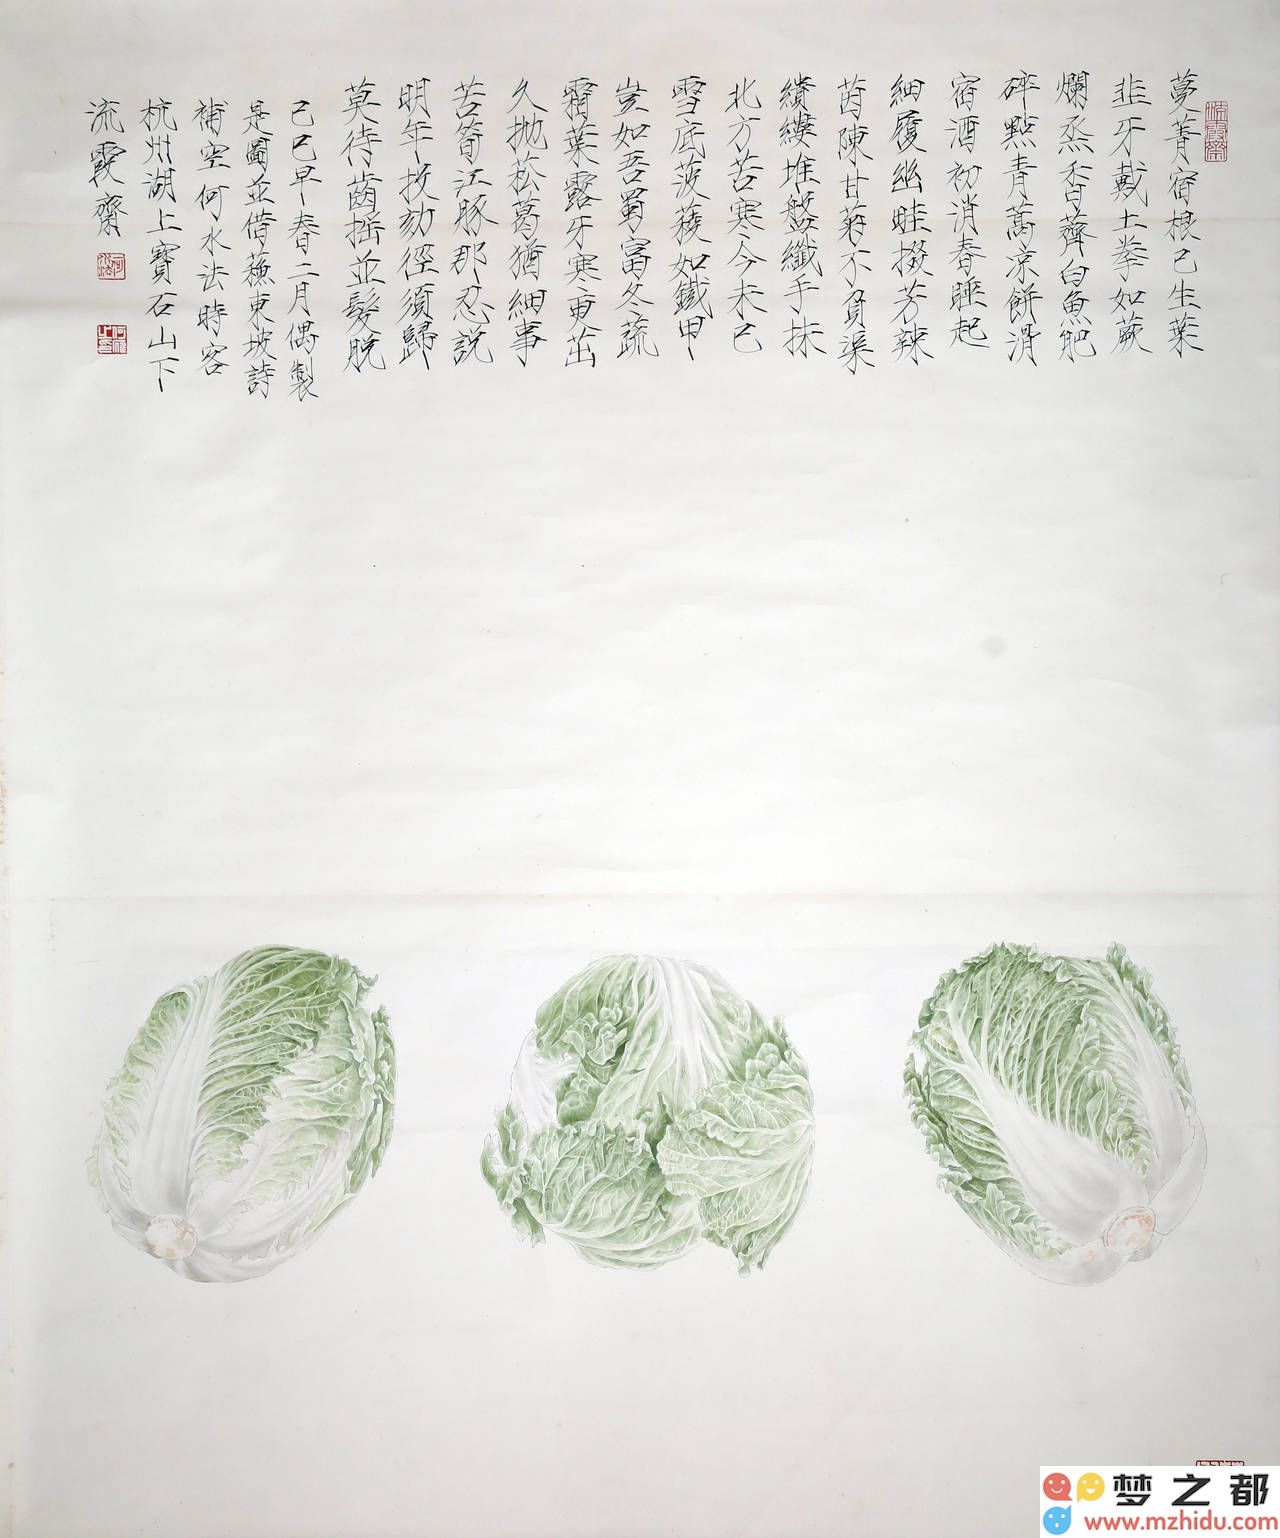 蔓菁宿根已生葉
韭牙戴土拳如蕨
爛烝香薺白魚肥
碎點青蒿凉餅滑
宿酒初消春睡起
細履幽畦掇芳辣
茵陳甘菊不負渠
繢縷堆盤纖手抹
北方苦寒今未已
雪底菠薐如鐵甲
豈如吾蜀富冬蔬
霜葉露牙寒更茁
久抛菘葛猶細事
苦筍江豚那忍説
明年投劾徑須歸
莫待齒摇並髮脫
己巳早春二月偶製
是圖並借蘇東坡詩
補空何水法時客
杭州湖上寶石山下
流霞齋
流霞齋
何水法
梦之都
www.mzhidu.com